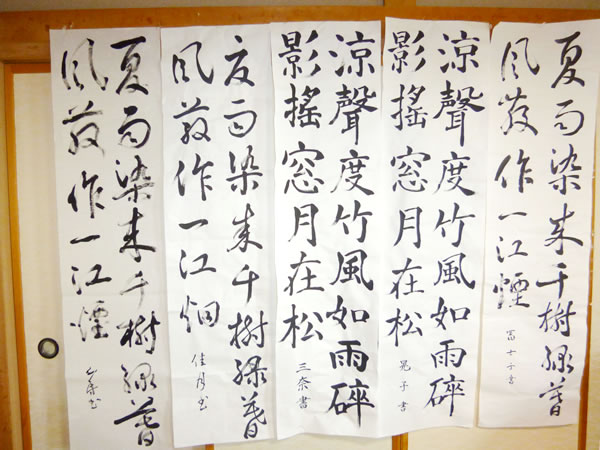 夏雨染成千樹緑暮
嵐散作一江煙
冨士子書
涼聲度竹風如雨碎
影搖窓月在松
晃子書
涼聲度竹風如雨碎
影搖窓月在松
三奈書
夏雨染成千樹緑暮
嵐散作一江烟
書
夏雨染成千樹緑暮
嵐散作一江煙
書